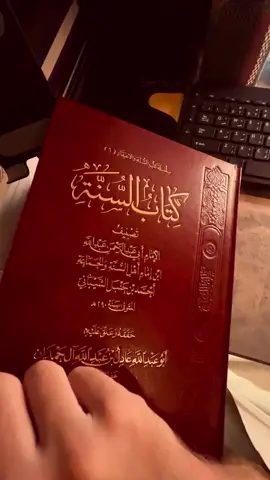 كتاب السُّنَّة
تصنيف
الإمام أبي عبد الرحمن عبد الله
ابن إمام أهل السنة والجماعة
أحمد بن حنبل الشيباني
المتوفى سنة ٢٩٠هـ
حققه وعلق عليه
أبو عبد الله عادل بن عبد الله آل حمدان